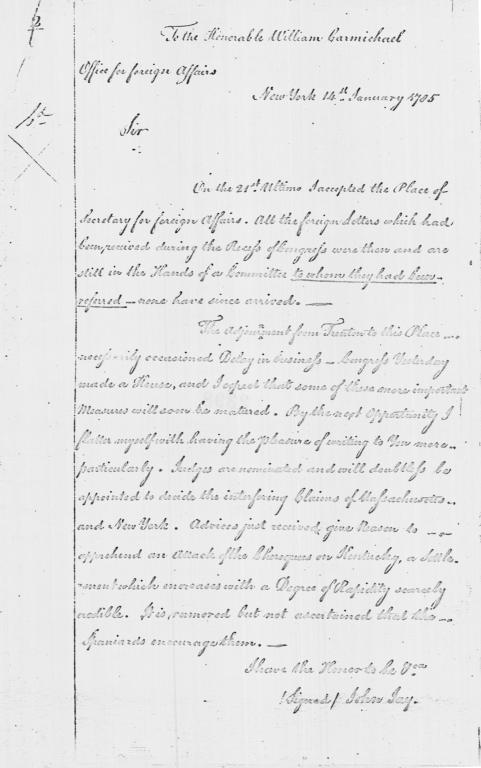 2
To the Honorable William Carmichael
Office for foreign Affairs
New York 14th January 1785
Sir
On the 21st Ultimo I accepted the Place of
Secretary for foreign Affairs. All the foreign Letters which had
been received during the Recess of Congress were then and are
still in the Hands of a Committee to whom they had been
referred — none have since arrived. —
The Adjournmt from Trenton to this Place
necessarily occasioned Delay in business — Congress Yesterday
made a House, and I expect that some of these more important
Measures will soon be matured. By the next Opportunity I
flatter myself with having the pleasure of writing to You more
particularly. Judges are nominated and will doubtless be
appointed to decide the interfering Claims of Massachusetts
and New York. Advices just received, give Reason to
apprehend an Attack of the Cherequees on Kentucky, a Settle-
-ment which encreases with a Degree of Rapidity scarcely
credible. It is rumored but not ascertained that the
Spaniards encourage them. —
I have the Honor to be &ca
/Signed/ John Jay.